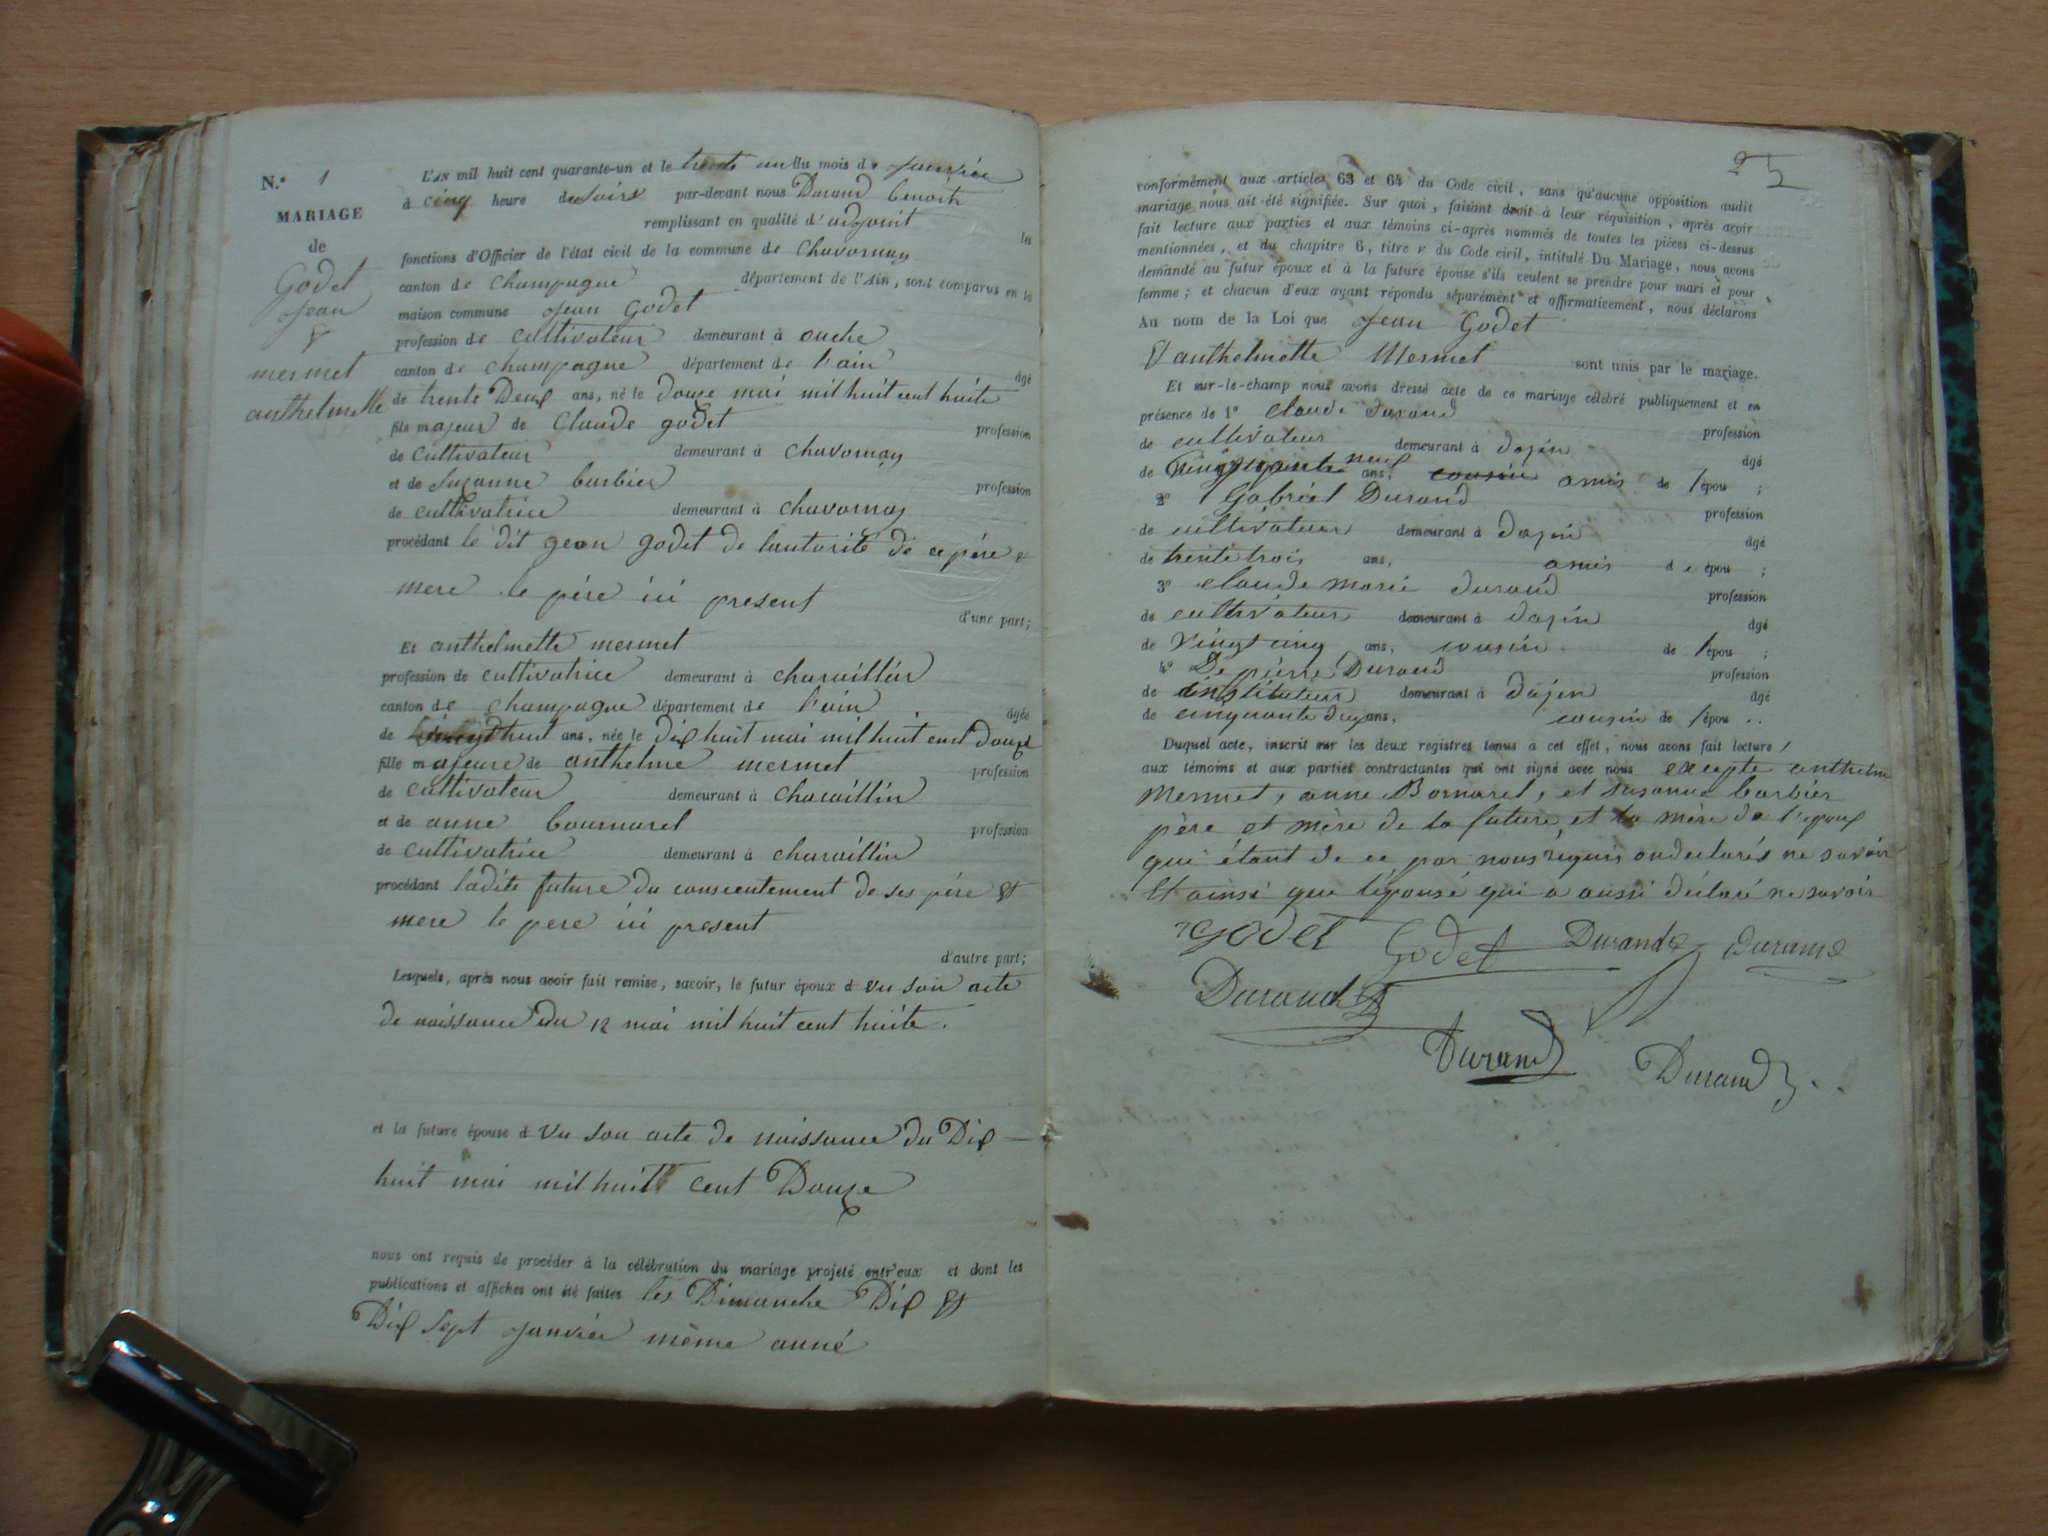 N.° 1
MARIAGE
de
Godet
Jean
&
mermet
anthelmette
L'AN mil huit cent quarante-un et le trente un du mois de Janvier
à cinq heure du soire par-devant nous Durand benoit
remplissant en qualité d'adjoint les
fonctions d'Officier de l'état civil de la commune de chavornay
canton de champagne département de l'Ain, sont comparus en la
maison commune Jean Godet
profession de cultivateur demeurant à ouche
canton de champagne département de l'ain âgé
de trente Deux ans, né le Douze mai mil huit cent huite
fils majeur de Claude godet profession
de cultivateur demeurant à chavornay
et de Suzanne barbier profession
de cultivatrice demeurant à chavornay
procédant le dit gean godet de lautorité de ce père &
mere le père ici present
d'une part;
Et anthelmette mermet
profession de cultivatrice demeurant à charaillin
canton de champagne département de l'ain âgée
de vingt huit ans, née le Dix huit mai mil huit cent Douze
fille majeure de anthelme mermet profession
de cultivateur demeurant à charaillin
et de anne bournarel profession
de cultivatrice demeurant à charaillin
procédant ladite future du conscentement de ses père &
mere le pere ici present
d'autre part;
Lesquels, après nous avoir fait remise, savoir, le futur époux d vu son acte
de naissance du 12 mai mil huit cent huite.
et la future épouse d vu son acte de naissance du Dix
huit mai mil huit cent Douze
nous ont requis de procéder à la célébration du mariage projeté entr'eux et dont les
publications et affiches ont été faites les Dimanche Dix &
Dix sept Janvier même anné
25
conformément aux articles 63 et 64 du Code civil, sans qu'aucune opposition audit
mariage nous ait été signifiée. Sur quoi, faisant droit à leur réquisition, après avoir
fait lecture aux parties et aux témoins ci-après nommés de toutes les pièces ci-dessus
mentionnées, et du chapitre 6, titre v du Code civil, intitulé Du Mariage, nous avons
demandé au futur époux et à la future épouse s'ils veulent se prendre pour mari et pour
femme; et chacun d'eux ayant répondu séparément et affirmativement, nous déclarons
Au nom de la Loi que Jean Godet
& anthelmette Mermet sont unis par le mariage.
Et sur-le-champ nous avons dressé acte de ce mariage célébré publiquement et en
présence de 1° claude Durand profession
de cultivateur demeurant à dojin âgé
de neuf ans, cousin amis de l'épou ;
2° Gabriel Durand profession
de cultivateur demeurant à dojin âgé
de trente trois ans, amis de épou ;
3° claude marie durand profession
de cultivateur demeurant à dojin âgé
de vingt cinq ans, cousin de l'épou ;
4° pierre Durand profession
de instituteur demeurant à dojin âgé
de cinquante ans, cousin de l'épou ..
Duquel acte, inscrit sur les deux registres tenus à cet effet, nous avons fait lecture
aux témoins et aux parties contractantes qui ont signé avec nous excepte anthelme
Mermet, anne Bornarel, et susanne barbier
père et mère de la future, et la mère de l'epoux
qui étant de ce par nous requis ondéclarés ne savoir
et ainsi que l'épouse qui a aussi déclaré ne savoir
Godet Godet Durand Durand
Durand
Durand Durand